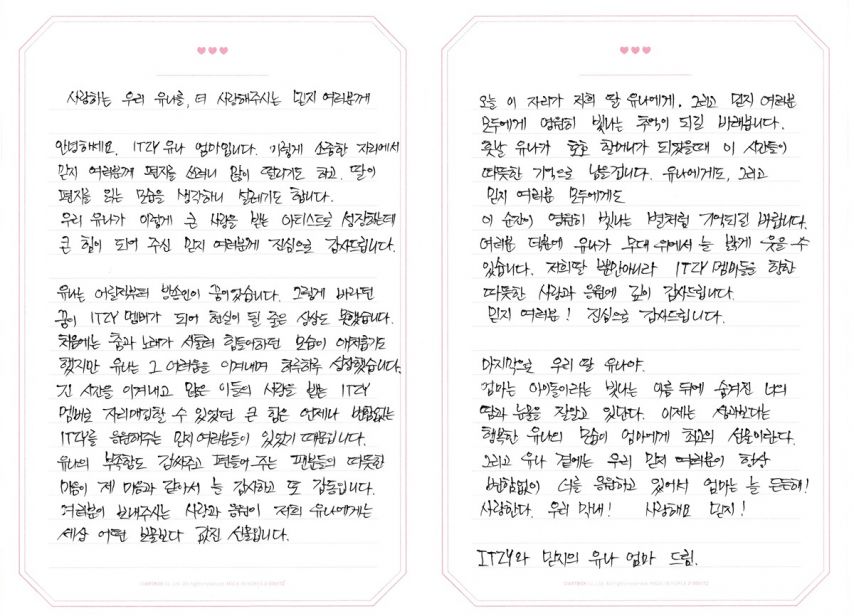 사랑하는 우리 유나를, 더 사랑해주시는 믿지 여러분께
안녕하세요. ITZY 유나 엄마입니다. 이렇게 소중한 자리에서
믿지 여러분께 편지를 쓰려니 많이 떨리기도 하고, 딸이
편지를 읽는 모습을 생각하니 설레기도 합니다.
우리 유나가 이렇게 큰 사랑을 받는 아티스트로 성장하는데
큰 힘이 되어 주신 믿지 여러분께 진심으로 감사드립니다.
유나는 어릴적부터 방송인이 꿈이었습니다. 그렇게 바라던
꿈이 ITZY 멤버가 되어 현실이 될 줄은 상상도 못했습니다.
처음에는 춤과 노래가 서툴러 힘들어하던 모습이 애처롭기도
했지만 유나는 그 어려움을 이겨내며 하루하루 성장했습니다.
긴 시간을 이겨내고 많은 이들의 사랑을 받는 ITZY
멤버로 자리매김할 수 있었던 큰 힘은 언제나 변함없는
ITZY를 응원해주는 믿지 여러분들이 있었기 때문입니다.
유나의 부족함도 감싸주고 편들어 주는 팬분들의 따뜻한
마음이 제 마음과 같아서 늘 감사하고 또 감동입니다.
여러분이 보내주시는 사랑과 응원이 저희 유나에게는
세상 어떤 보물보다 값진 선물입니다.
오늘 이 자리가 저희 딸 유나에게. 그리고 믿지 여러분
모두에게 영원히 빛나는 추억이 되길 바래봅니다.
훗날 유나가 호호 할머니가 되었을때 이 시간들이
따뜻한 기억으로 남을겁니다. 유나에게도, 그리고
믿지 여러분 모두에게도
이 순간이 영원히 빛나는 별처럼 기억되길 바랍니다.
여러분 덕분에 유나가 무대 위에서 늘 밝게 웃을 수
있습니다. 저희딸 뿐만아니라 ITZY 멤버들을 향한
따뜻한 사랑과 응원에 깊이 감사드립니다.
믿지 여러분! 진심으로 감사드립니다.
마지막으로 우리 딸 유나야.
엄마는 아이돌이라는 빛나는 이름 뒤에 숨겨진 너의
땀과 눈물을 잘알고 있단다. 이제는 성과보다는
행복한 유나의 모습이 엄마에게 최고의 선물이란다.
그리고 유나 곁에는 우리 믿지 여러분이 항상
변함없이 너를 응원하고 있어서 엄마는 늘 든든해!
사랑한다. 우리 막내! 사랑해요 믿지!
ITZY와 믿지의 유나 엄마 드림.